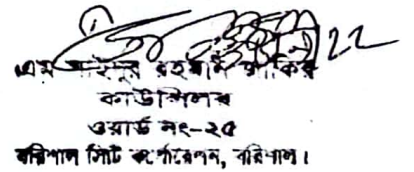 22
এম সাইদুর রহমান জাকির
কাউন্সিলর
ওয়ার্ড নং-২৫
বরিশাল সিটি কর্পোরেশন, বরিশাল।